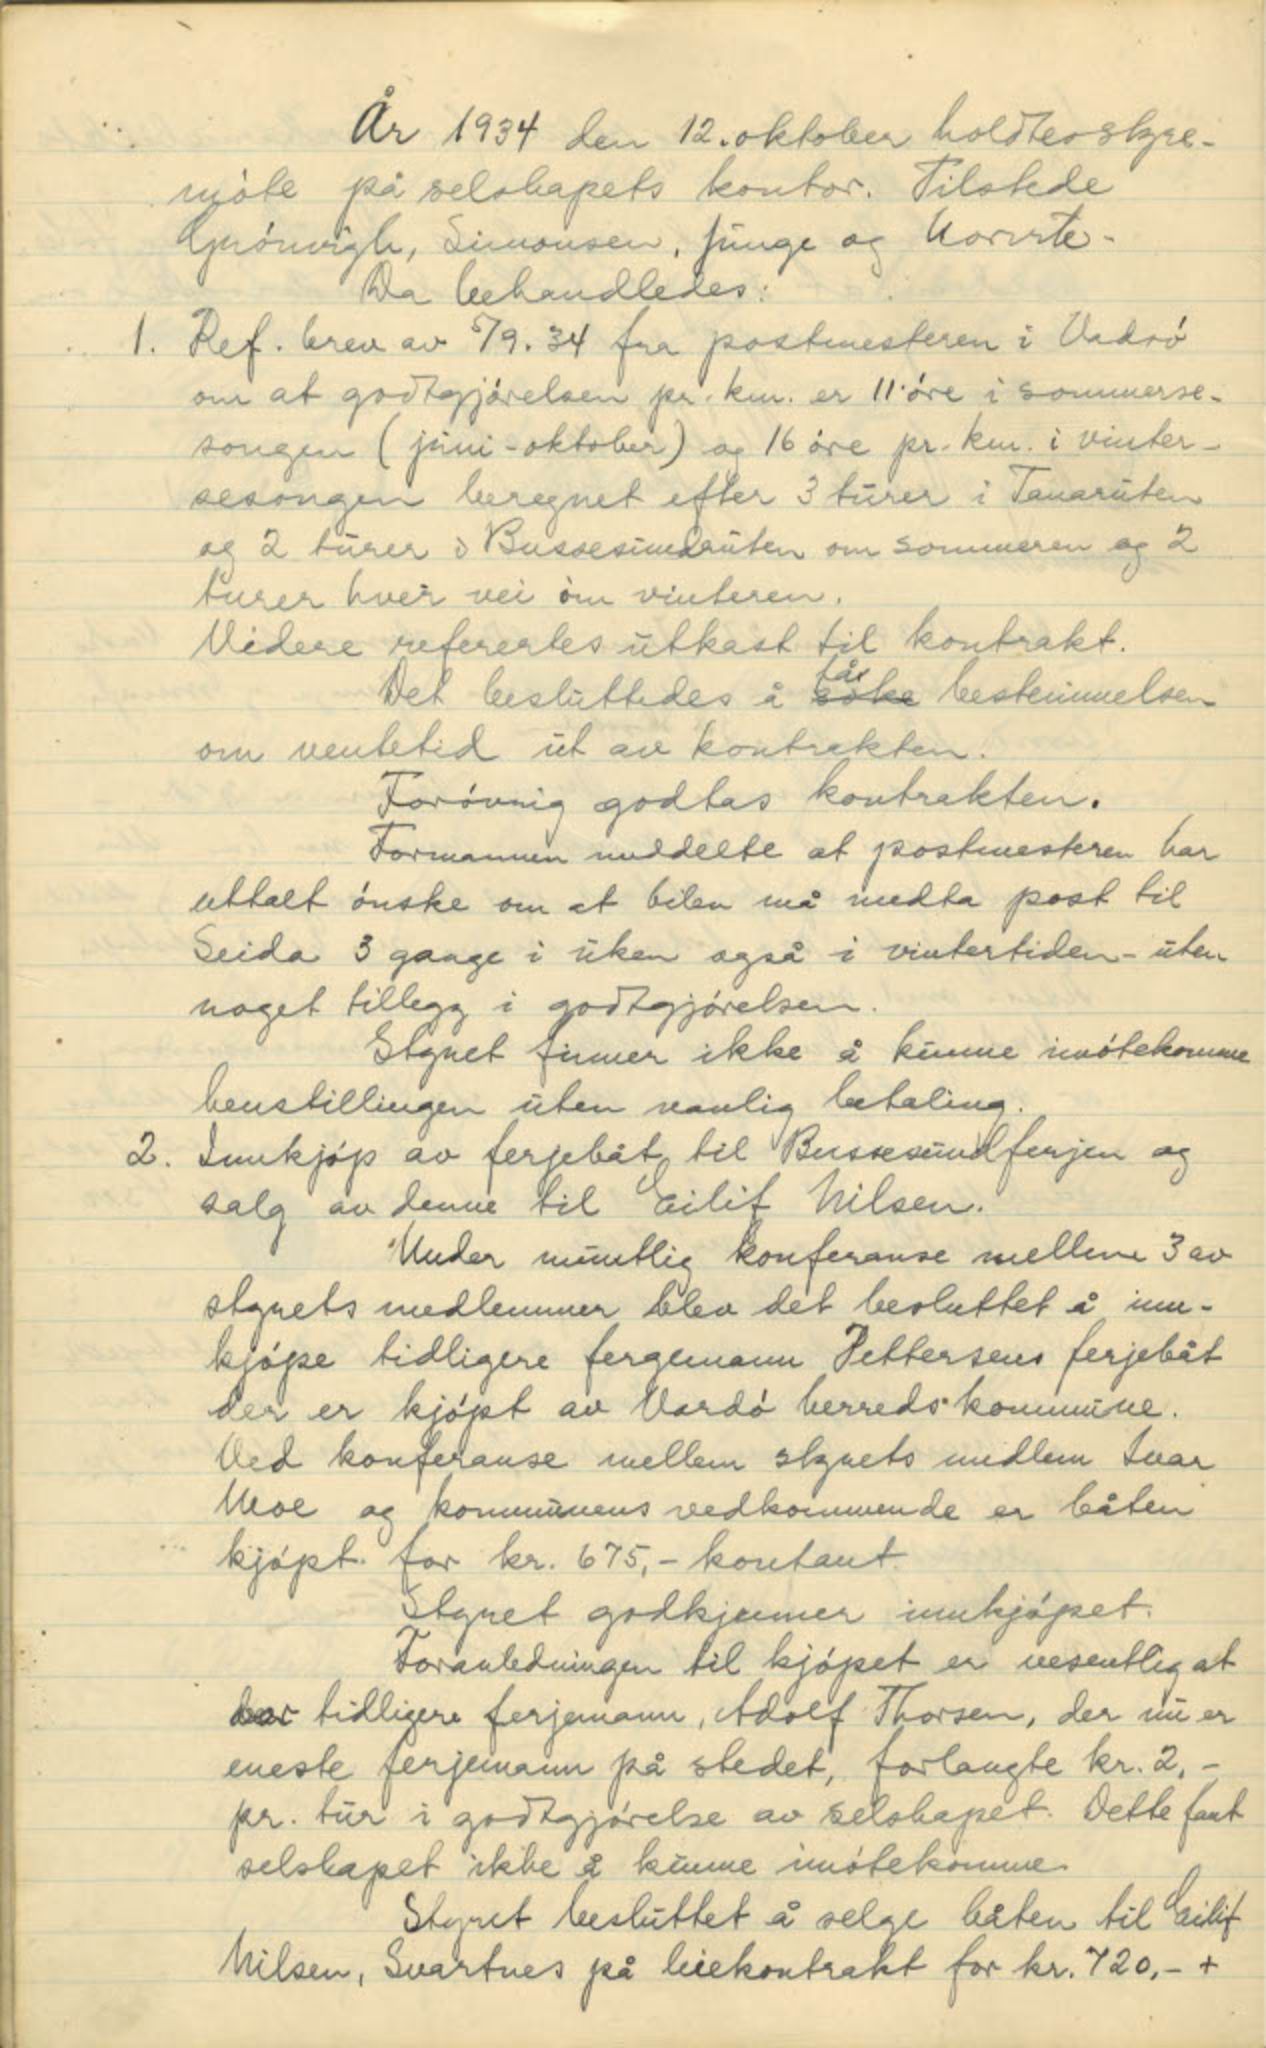 År 1934 den 12. oktober holdtes styre-
møte på selskapets kontor. Tilstede
Grønvigh, Simonsen, Junge og
Da behandledes:
1. Ref. brev av 5/9.34 fra postmesteren i Vadsø
om at godtgjørelsen pr. km. er 11 øre i sommerse-
songen (juni-oktober) og 16 øre pr. km. i vinter-
sesongen beregnet efter 3 turer i Tanaruten
og 2 turer i Bussesundruten om sommeren og 2
turer hver vei om vinteren.
Videre referertes utkast til kontrakt.
Det besluttedes å søke få bestemmelsen
om ventetid ut av kontrakten.
Forøvrig godtas kontrakten.
Formannen meddelte at postmesteren har
uttalt ønske om at bilen må medta post til
Seida 3 gange i uken også i vintertiden - uten
noget tillegg i godtgjørelsen.
Styret finner ikke å kunne imøtekomme
henstillingen uten vanlig betaling.
2. Innkjøp av ferjebåt til Bussesundferjen og
salg av denne til Eilif Nilsen.
Under muntlig konferanse mellem 3 av
styrets medlemmer blev det besluttet å inn-
kjøpe tidligere fergemann Pettersens ferjebåt
der er kjøpt av Vardø herredskommune.
Ved konferanse mellem styrets medlem Ivar
Moe og kommunens vedkommende er båten
kjøpt for kr. 675,- kontant.
Styret godkjenner innkjøpet.
Foranledningen til kjøpet er vesentlig at
tidligere ferjemann, Adolf Thorsen, der nu er
eneste ferjemann på stedet, forlangte kr. 2,-
pr. tur i godtgjørelse av selskapet. Dette fant
selskapet ikke å kunne imøtekomme.
Styret besluttet å selge båten til Eilif
Nilsen, Svartnes på leiekontrakt for kr. 720,- +